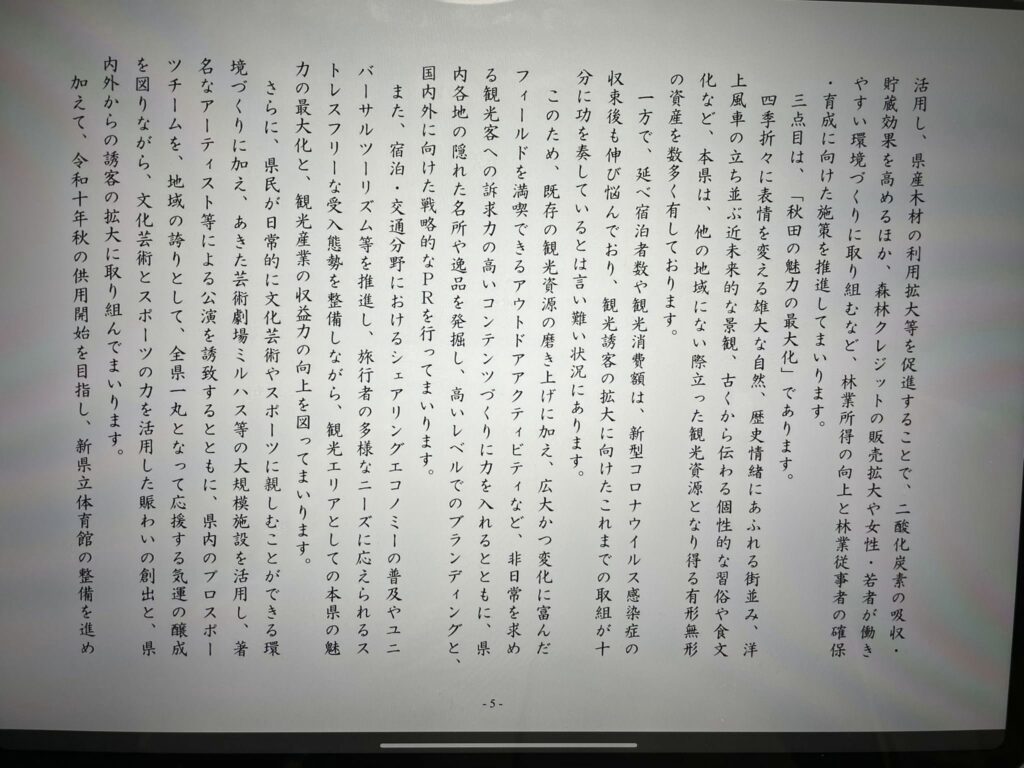 活用し、県産木材の利用拡大等を促進することで、二酸化炭素の吸収・
貯蔵効果を高めるほか、森林クレジットの販売拡大や女性・若者が働き
やすい環境づくりに取り組むなど、林業所得の向上と林業従事者の確保
・育成に向けた施策を推進してまいります。
三点目は、「秋田の魅力の最大化」であります。
四季折々に表情を変える雄大な自然、歴史情緒にあふれる街並み、洋
上風車の立ち並ぶ近未来的な景観、古くから伝わる個性的な習俗や食文
化など、本県は、他の地域にない際立った観光資源となり得る有形無形
の資産を数多く有しております。
一方で、延べ宿泊者数や観光消費額は、新型コロナウイルス感染症の
収束後も伸び悩んでおり、観光誘客の拡大に向けたこれまでの取組が十
分に功を奏しているとは言い難い状況にあります。
このため、既存の観光資源の磨き上げに加え、広大かつ変化に富んだ
フィールドを満喫できるアウトドアアクティビティなど、非日常を求め
る観光客への訴求力の高いコンテンツづくりに力を入れるとともに、県
内各地の隠れた名所や逸品を発掘し、高いレベルでのブランディングと、
国内外に向けた戦略的なPRを行ってまいります。
また、宿泊・交通分野におけるシェアリングエコノミーの普及やユニ
バーサルツーリズム等を推進し、旅行者の多様なニーズに応えられるス
トレスフリーな受入態勢を整備しながら、観光エリアとしての本県の魅
力の最大化と、観光産業の収益力の向上を図ってまいります。
さらに、県民が日常的に文化芸術やスポーツに親しむことができる環
境づくりに加え、あきた芸術劇場ミルハス等の大規模施設を活用し、著
名なアーティスト等による公演を誘致するとともに、県内のプロスポー
ツチームを、地域の誇りとして、全県一丸となって応援する気運の醸成
を図りながら、文化芸術とスポーツの力を活用した賑わいの創出と、県
内外からの誘客の拡大に取り組んでまいります。
加えて、令和十年秋の供用開始を目指し、新県立体育館の整備を進め
- 5 -